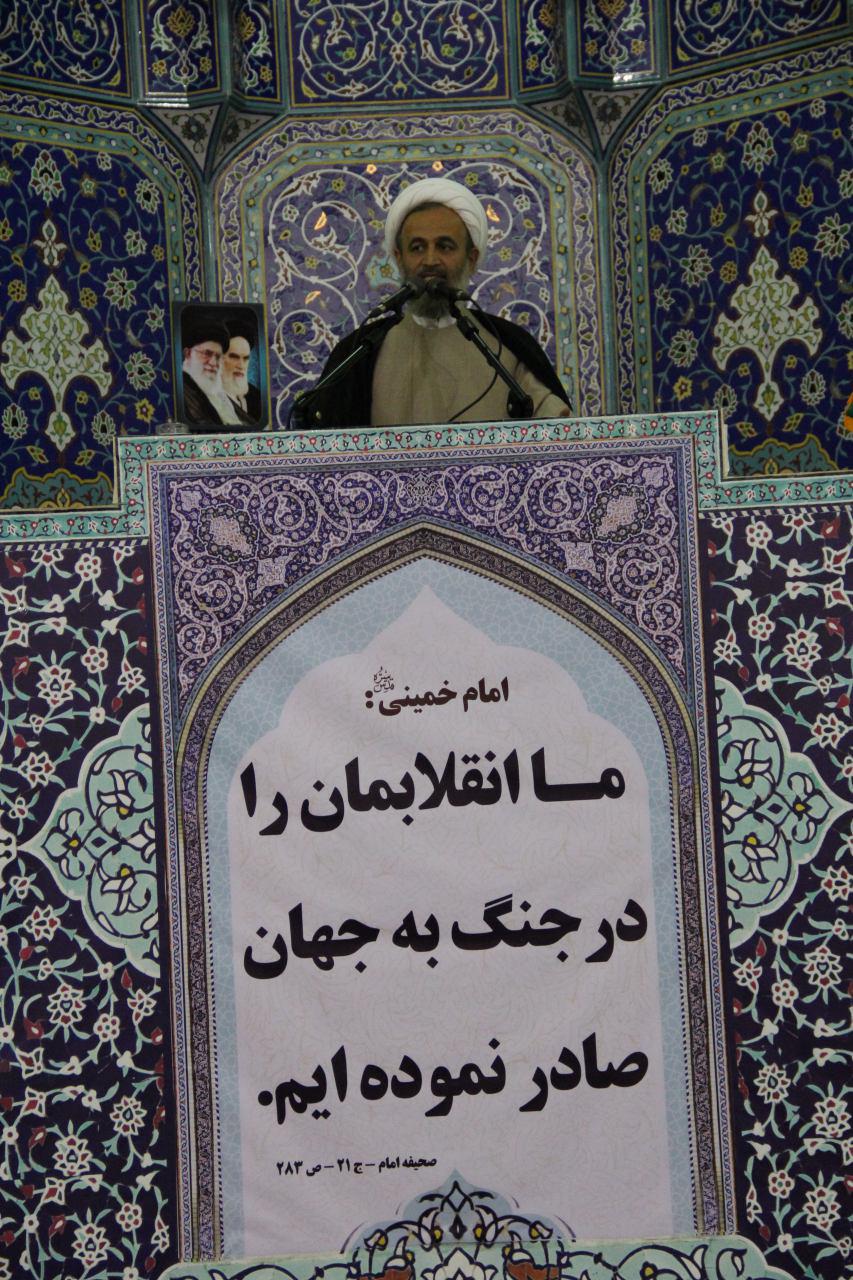 امام خمینی قدس سره:
ما انقلابمان را
در جنگ به جهان
صادر نموده ایم.
صحیفه امام - ج ۲۱ - ص ۲۸۳